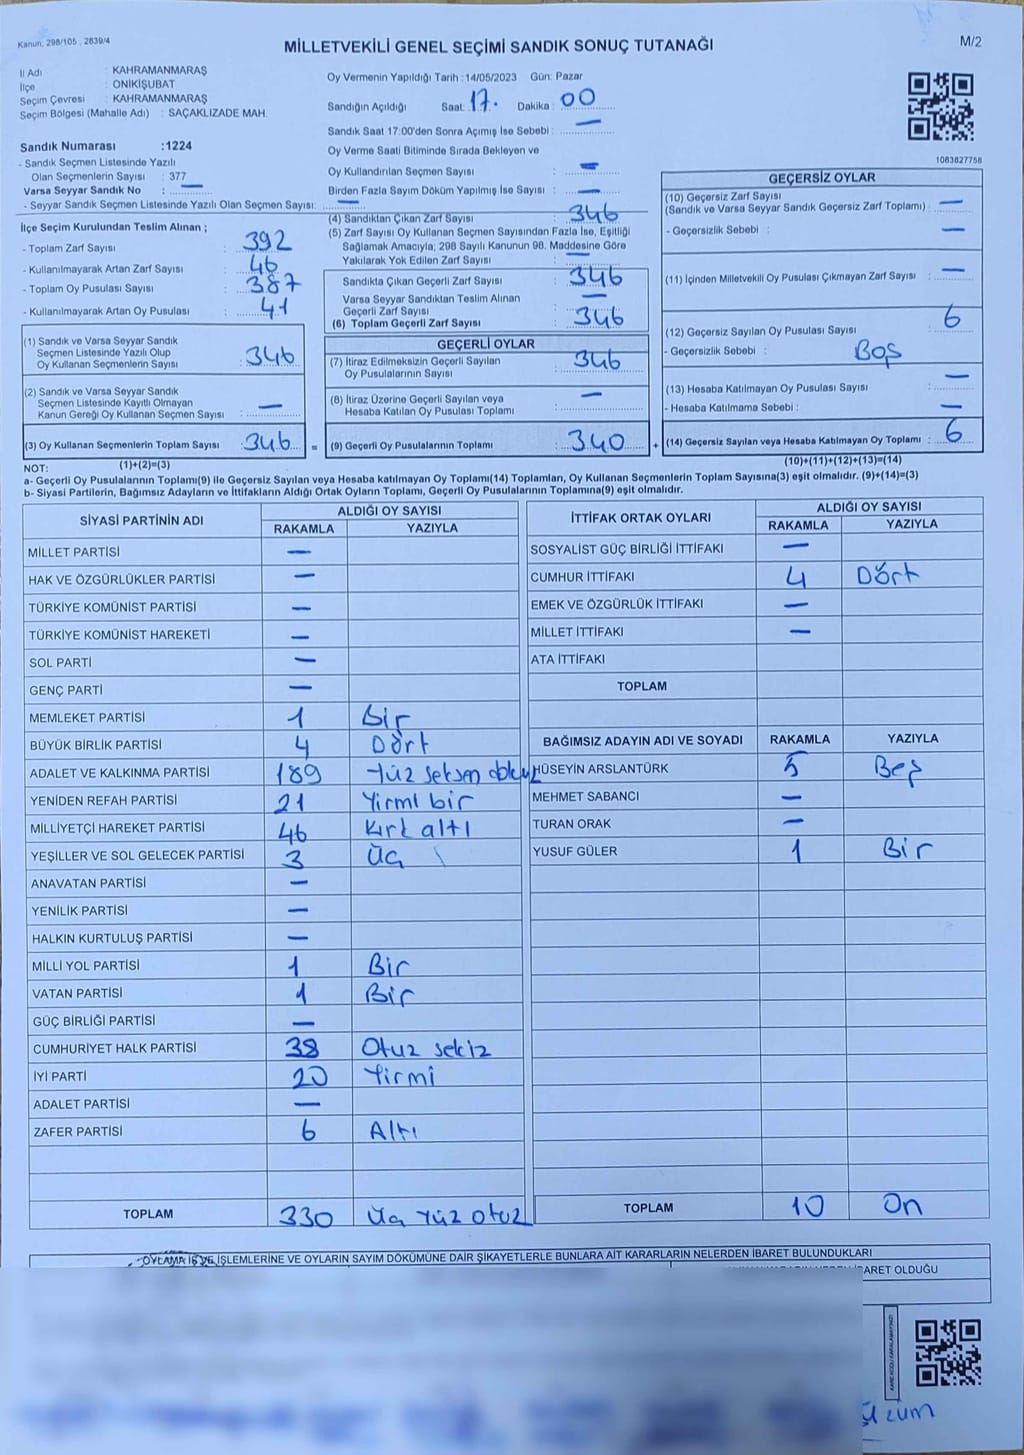 Kanun, 298/105 , 2839/4
MİLLETVEKİLİ GENEL SEÇİMİ SANDIK SONUÇ TUTANAĞI
M/2
İl Adı : KAHRAMANMARAŞ
İlçe : ONİKİŞUBAT
Seçim Çevresi : KAHRAMANMARAŞ
Seçim Bölgesi (Mahalle Adı) : SAÇAKLIZADE MAH.
Sandık Numarası :1224
- Sandık Seçmen Listesinde Yazılı
Olan Seçmenlerin Sayısı : 377
Varsa Seyyar Sandık No : —
- Seyyar Sandık Seçmen Listesinde Yazılı Olan Seçmen Sayısı: —
Oy Vermenin Yapıldığı Tarih :14/05/2023 Gün: Pazar
Sandığın Açıldığı Saat: 17. Dakika : 00
Sandık Saat 17:00'den Sonra Açımış İse Sebebi : —
Oy Verme Saati Bitiminde Sırada Bekleyen ve
Oy Kullandırılan Seçmen Sayısı : —
Birden Fazla Sayım Döküm Yapılmış İse Sayısı : —
1083827758
İlçe Seçim Kurulundan Teslim Alınan ;
- Toplam Zarf Sayısı : 392
- Kullanılmayarak Artan Zarf Sayısı : 46
- Toplam Oy Pusulası Sayısı : 387
- Kullanılmayarak Artan Oy Pusulası : 41
(1) Sandık ve Varsa Seyyar Sandık
Seçmen Listesinde Yazılı Olup
Oy Kullanan Seçmenlerin Sayısı : 346
(2) Sandık ve Varsa Seyyar Sandık
Seçmen Listesinde Kayıtlı Olmayan
Kanun Gereği Oy Kullanan Seçmen Sayısı : —
(3) Oy Kullanan Seçmenlerin Toplam Sayısı : 346 =
(4) Sandıktan Çıkan Zarf Sayısı : 346
(5) Zarf Sayısı Oy Kullanan Seçmen Sayısından Fazla İse, Eşitliği
Sağlamak Amacıyla; 298 Sayılı Kanunun 98. Maddesine Göre
Yakılarak Yok Edilen Zarf Sayısı : —
Sandıkta Çıkan Geçerli Zarf Sayısı : 346
Varsa Seyyar Sandıktan Teslim Alınan
Geçerli Zarf Sayısı : —
(6) Toplam Geçerli Zarf Sayısı : 346
GEÇERLİ OYLAR
(7) İtiraz Edilmeksizin Geçerli Sayılan
Oy Pusulalarının Sayısı : 346
(8) İtiraz Üzerine Geçerli Sayılan veya
Hesaba Katılan Oy Pusulası Toplamı : —
(9) Geçerli Oy Pusulalarının Toplamı : 340 +
GEÇERSİZ OYLAR
(10) Geçersiz Zarf Sayısı
(Sandık ve Varsa Seyyar Sandık Geçersiz Zarf Toplamı) : —
- Geçersizlik Sebebi : —
(11) İçinden Milletvekili Oy Pusulası Çıkmayan Zarf Sayısı : —
(12) Geçersiz Sayılan Oy Pusulası Sayısı : 6
- Geçersizlik Sebebi : Boş
(13) Hesaba Katılmayan Oy Pusulası Sayısı : —
- Hesaba Katılmama Sebebi : —
(14) Geçersiz Sayılan veya Hesaba Katılmayan Oy Toplamı : 6
NOT: (1)+(2)=(3)
(10)+(11)+(12)+(13)=(14)
a- Geçerli Oy Pusulalarının Toplamı(9) ile Geçersiz Sayılan veya Hesaba katılmayan Oy Toplamı(14) Toplamları, Oy Kullanan Seçmenlerin Toplam Sayısına(3) eşit olmalıdır. (9)+(14)=(3)
b- Siyasi Partilerin, Bağımsız Adayların ve İttifakların Aldığı Ortak Oyların Toplamı, Geçerli Oy Pusulalarının Toplamına(9) eşit olmalıdır.
SİYASİ PARTİNİN ADI ALDIĞI OY SAYISI
RAKAMLA YAZIYLA
MİLLET PARTİSİ —
HAK VE ÖZGÜRLÜKLER PARTİSİ —
TÜRKİYE KOMÜNİST PARTİSİ —
TÜRKİYE KOMÜNİST HAREKETİ —
SOL PARTİ —
GENÇ PARTİ —
MEMLEKET PARTİSİ 1 Bir
BÜYÜK BİRLİK PARTİSİ 4 Dört
ADALET VE KALKINMA PARTİSİ 189 Yüz seksen dokuz
YENİDEN REFAH PARTİSİ 21 Yirmi bir
MİLLİYETÇİ HAREKET PARTİSİ 46 Kırk altı
YEŞİLLER VE SOL GELECEK PARTİSİ 3 Üç
ANAVATAN PARTİSİ —
YENİLİK PARTİSİ —
HALKIN KURTULUŞ PARTİSİ —
MİLLİ YOL PARTİSİ 1 Bir
VATAN PARTİSİ 1 Bir
GÜÇ BİRLİĞİ PARTİSİ —
CUMHURİYET HALK PARTİSİ 38 Otuz sekiz
İYİ PARTİ 20 Yirmi
ADALET PARTİSİ —
ZAFER PARTİSİ 6 Altı
TOPLAM 330 Üç Yüz Otuz
İTTİFAK ORTAK OYLARI ALDIĞI OY SAYISI
RAKAMLA YAZIYLA
SOSYALİST GÜÇ BİRLİĞİ İTTİFAKI —
CUMHUR İTTİFAKI 4 Dört
EMEK VE ÖZGÜRLÜK İTTİFAKI —
MİLLET İTTİFAKI —
ATA İTTİFAKI
TOPLAM
BAĞIMSIZ ADAYIN ADI VE SOYADI RAKAMLA YAZIYLA
HÜSEYİN ARSLANTÜRK 5 Beş
MEHMET SABANCI —
TURAN ORAK —
YUSUF GÜLER 1 Bir
TOPLAM 10 On
OYLAMA İŞ VE İŞLEMLERİNE VE OYLARIN SAYIM DÖKÜMÜNE DAİR ŞİKAYETLERLE BUNLARA AİT KARARLARIN NELERDEN İBARET BULUNDUKLARI
İBARET OLDUĞU